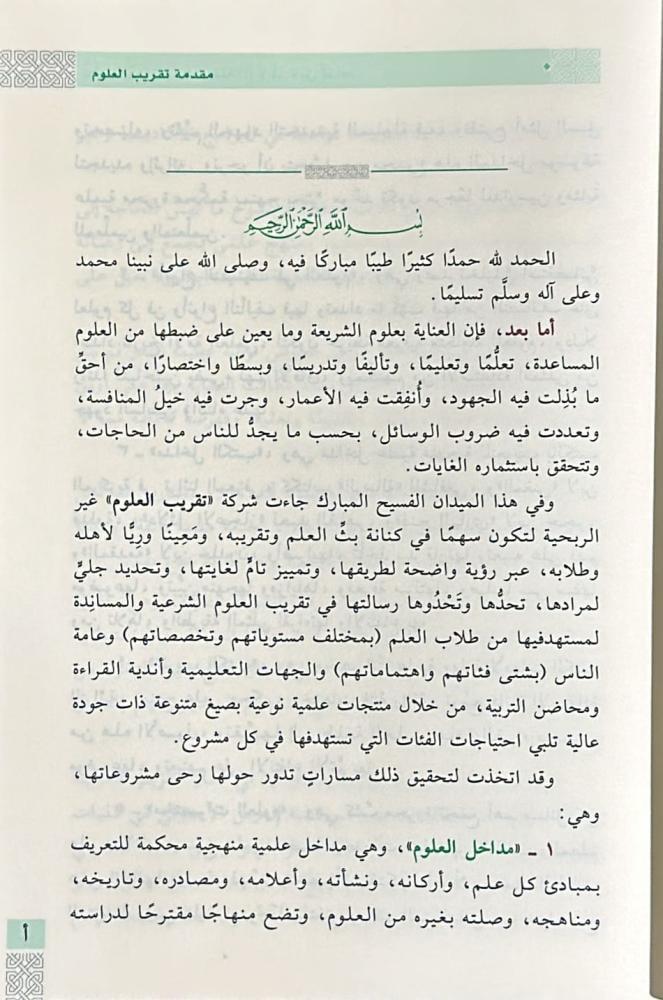 مقدمة تقريب العلوم
بسم الله الرحمن الرحيم
الحمد لله حمدًا كثيرًا طيبًا مباركًا فيه، وصلى الله على نبينا محمد
وعلى آله وسلَّم تسليمًا.
أما بعد، فإن العناية بعلوم الشريعة وما يعين على ضبطها من العلوم
المساعدة، تعلُّمًا وتعليمًا، وتأليفًا وتدريسًا، وبسطًا واختصارًا، من أحقِّ
ما بُذِلت فيه الجهود، وأُنفِقت فيه الأعمار، وجرت فيه خيلُ المنافسة،
وتعددت فيه ضروب الوسائل، بحسب ما يجدُّ للناس من الحاجات،
وتتحقق باستثماره الغايات.
وفي هذا الميدان الفسيح المبارك جاءت شركة «تقريب العلوم» غير
الربحية لتكون سهمًا في كنانة بثِّ العلم وتقريبه، ومَعِينًا ورِيًّا لأهله
وطلابه، عبر رؤية واضحة لطريقها، وتمييز تامٍّ لغايتها، وتحديد جليٍّ
لمرادها، تحدُّها وتَحْدُوها رسالتها في تقريب العلوم الشرعية والمسانِدة
لمستهدفيها من طلاب العلم (بمختلف مستوياتهم وتخصصاتهم) وعامة
الناس (بشتى فئاتهم واهتماماتهم) والجهات التعليمية وأندية القراءة
ومحاضن التربية، من خلال منتجات علمية نوعية بصيغ متنوعة ذات جودة
عالية تلبي احتياجات الفئات التي تستهدفها في كل مشروع.
وقد اتخذت لتحقيق ذلك مساراتٍ تدور حولها رحى مشروعاتها،
وهي:
١ ـ «مداخل العلوم»، وهي مداخل علمية منهجية محكمة للتعريف
بمبادئ كل علم، وأركانه، ونشأته، وأعلامه، ومصادره، وتاريخه،
ومناهجه، وصلته بغيره من العلوم، وتضع منهاجًا مقترحًا لدراسته
أ